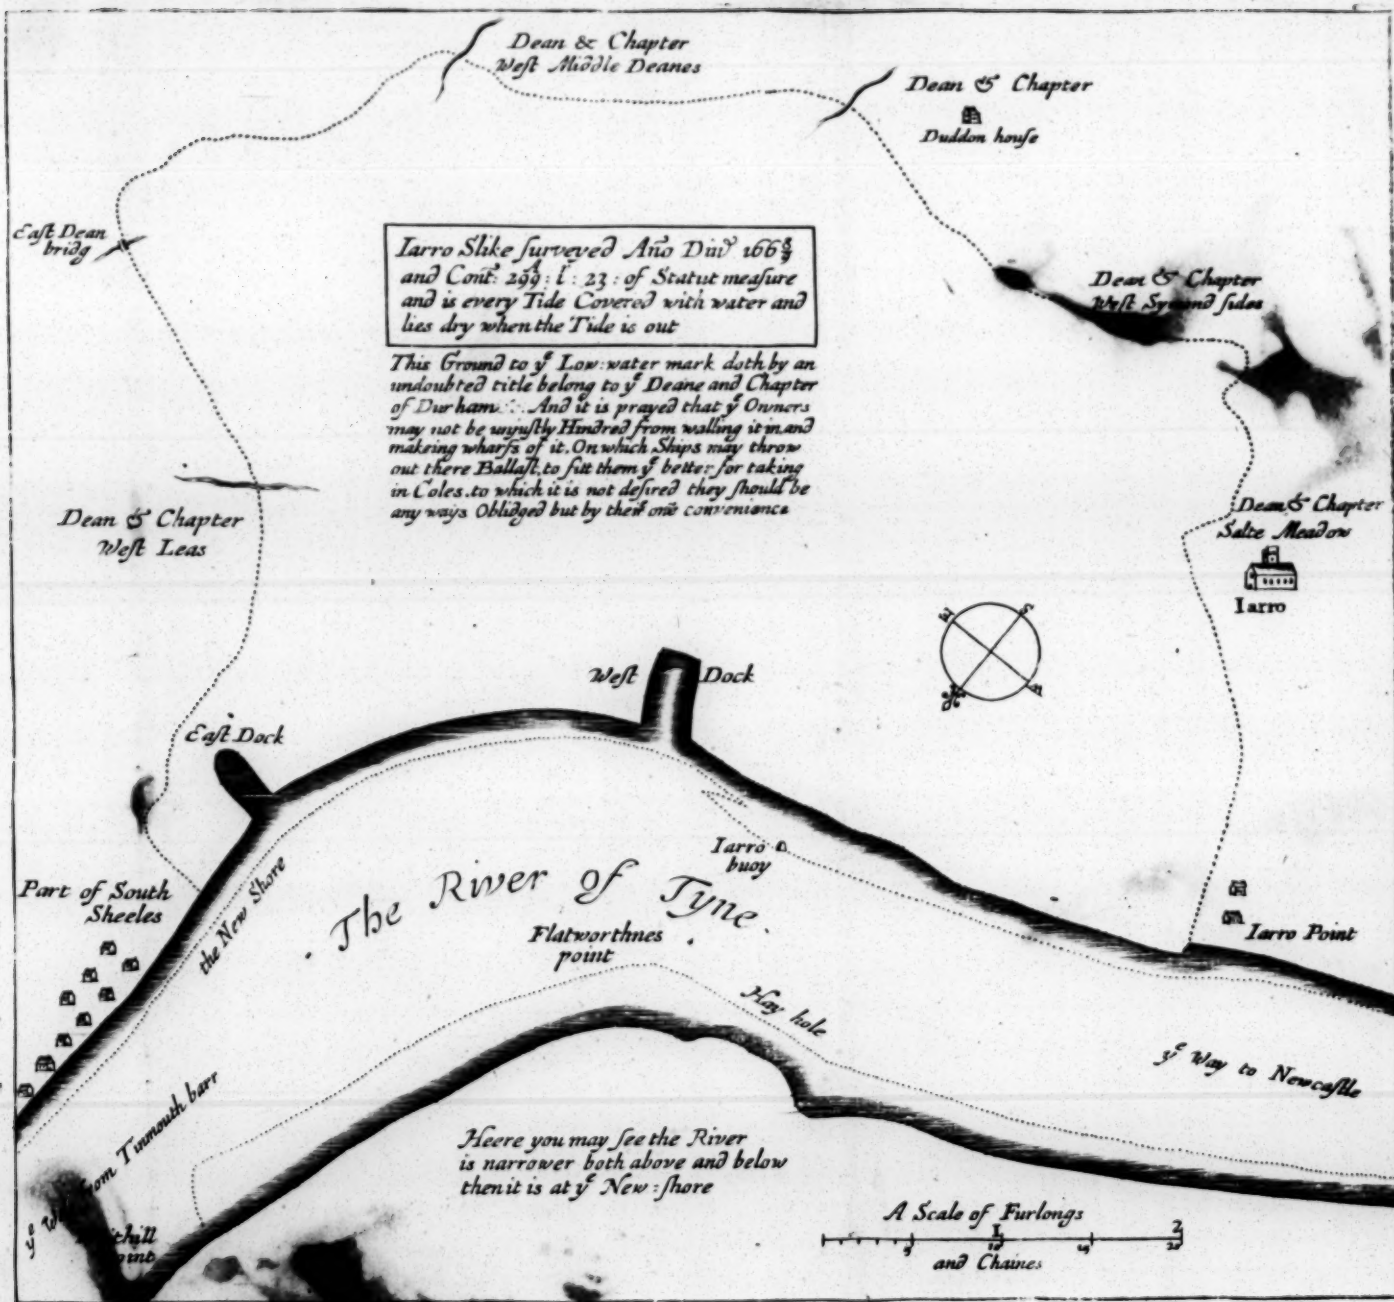 Dean & Chapter
West Middle Deanes
Dean & Chapter
Duddon house
East Dean
bridg
Iarro Slike surveyed Año Dm̄ 166 8/9
and Cont: 299: 1: 23: of Statut measure
and is every Tide Covered with water and
lies dry when the Tide is out
Dean & Chapter
West Symond sides
This Ground to yᵉ Low:water mark doth by an
undoubted title belong to yᵉ Deane and Chapter
of Durham. And it is prayed that yᵉ Owners
may not be unjustly Hindred from walling it in and
makeing wharfs of it. On which Ships may throw
out there Ballast, to fitt them yᵉ better for taking
in Coles. to which it is not desired they should be
any ways Oblidged but by their one convenience
Dean & Chapter
West Leas
Dean & Chapter
Salte Meadow
Iarro
West Dock
East Dock
Iarro
buoy
Part of South
Sheeles
the New Shore
The River of Tyne
Flatworthnes
point
Iarro Point
Hay hole
yᵉ Way to Newcastle
yᵉ Way from Tinmouth barr
Heere you may see the River
is narrower both above and below
then it is at yᵉ New:shore
A Scale of Furlongs
1 2
5 10 15 20
and Chaines